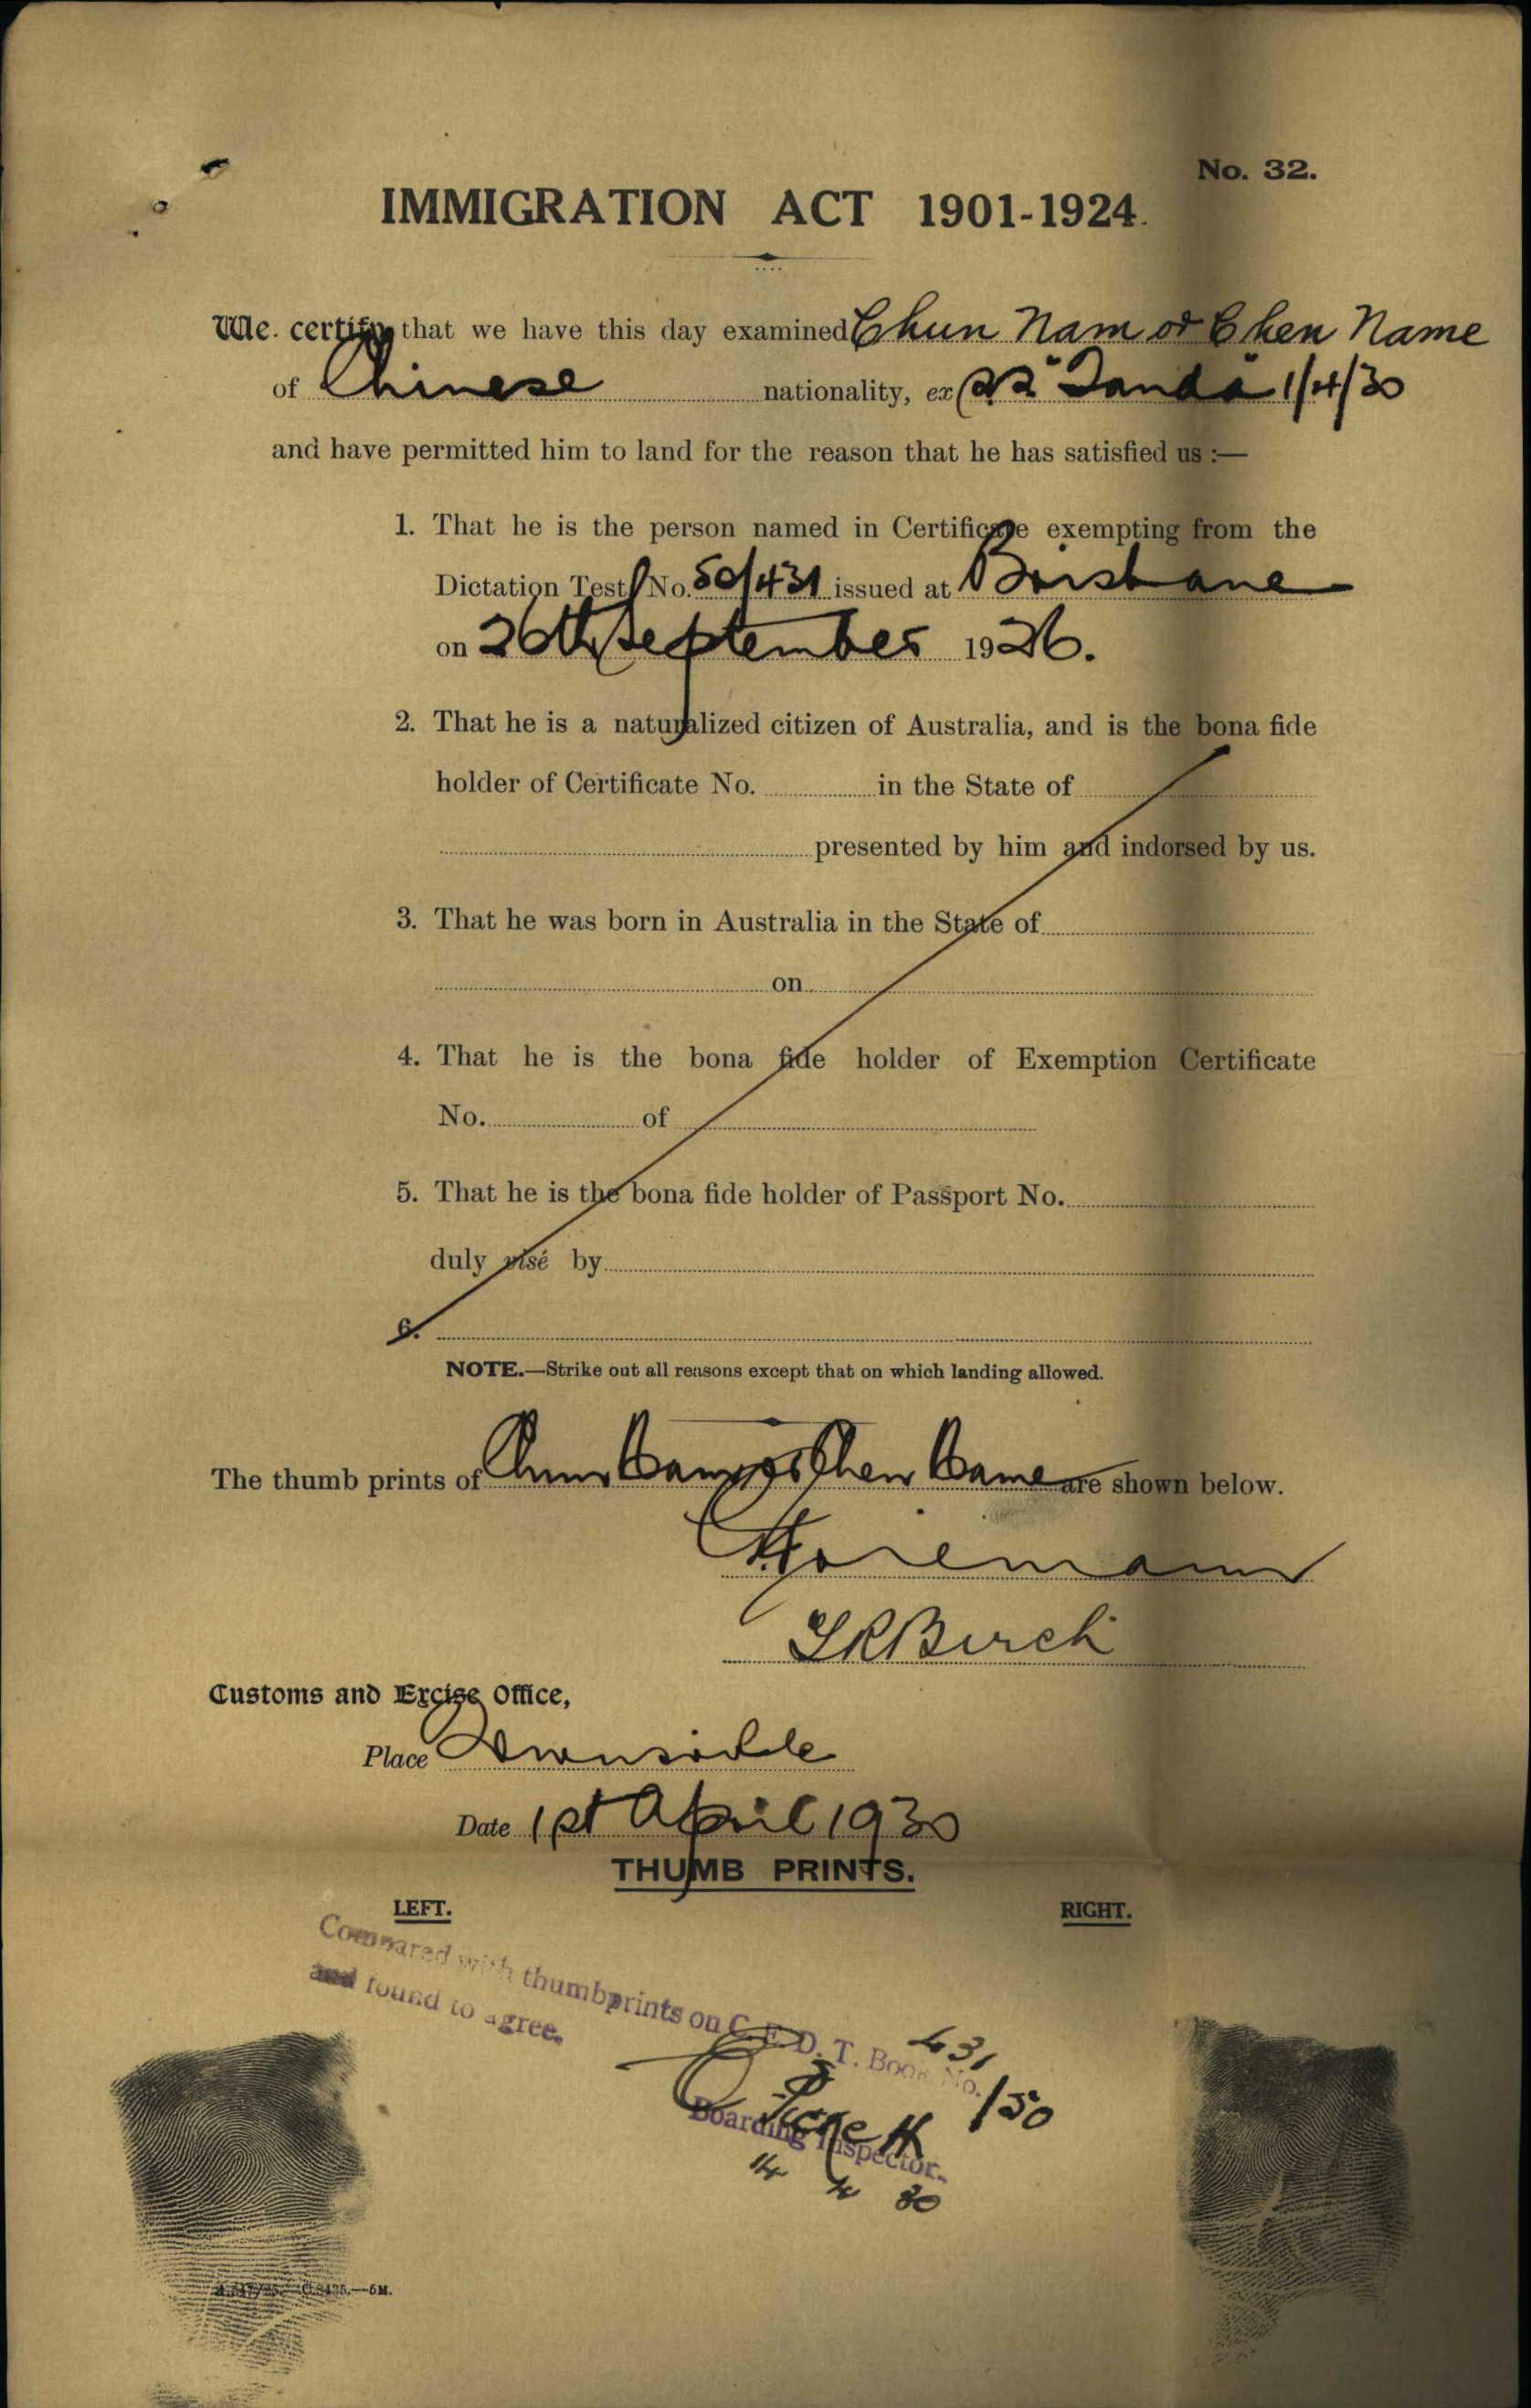 No. 32.
IMMIGRATION ACT 1901-1924.
We certify that we have this day examined Chun Nam or Chen Name
of Chinese nationality, ex SS "Tanda" 1/4/30
and have permitted him to land for the reason that he has satisfied us :—
1. That he is the person named in Certificate exempting from the
Dictation Test No. 50/431 issued at Brisbane
on 26th September 1926.
2. That he is a naturalized citizen of Australia, and is the bona fide
holder of Certificate No. in the State of
presented by him and indorsed by us.
3. That he was born in Australia in the State of
on
4. That he is the bona fide holder of Exemption Certificate
No. of
5. That he is the bona fide holder of Passport No.
duly visé by
6.
NOTE.—Strike out all reasons except that on which landing allowed.
The thumb prints of Chun Nam or Chen Name are shown below.
Birch
Customs and Excise Office,
Place Townsville
Date 1st April 1930
THUMB PRINTS.
LEFT. RIGHT.
Compared with thumbprints on C. E. D. T. Book No. 431/50
and found to agree.
Boarding Inspector.
14 4 30
—5M.